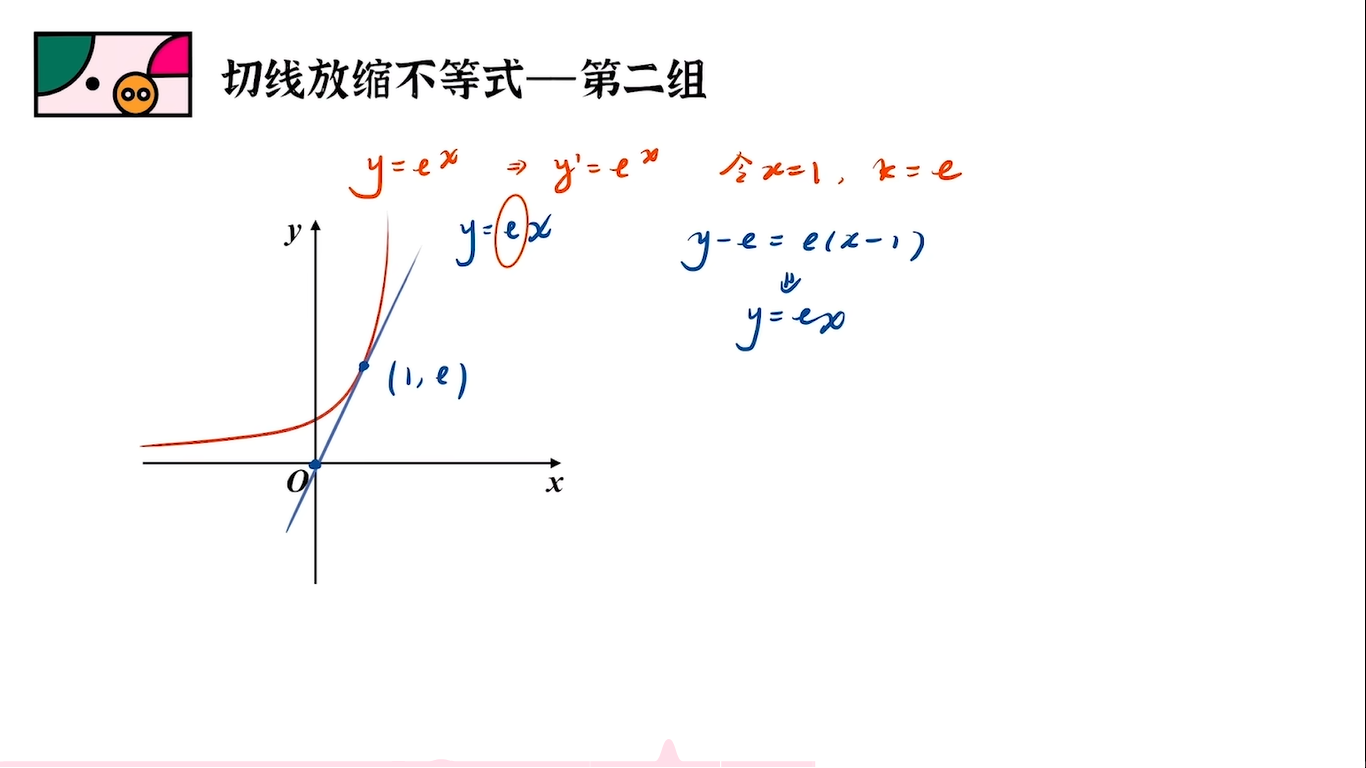 切线放缩不等式—第二组
y=eˣ ⇒ y'=eˣ 令x=1, k=e
y=ex
y-e=e(x-1)
⇓
y=ex
y
(1,e)
O
x